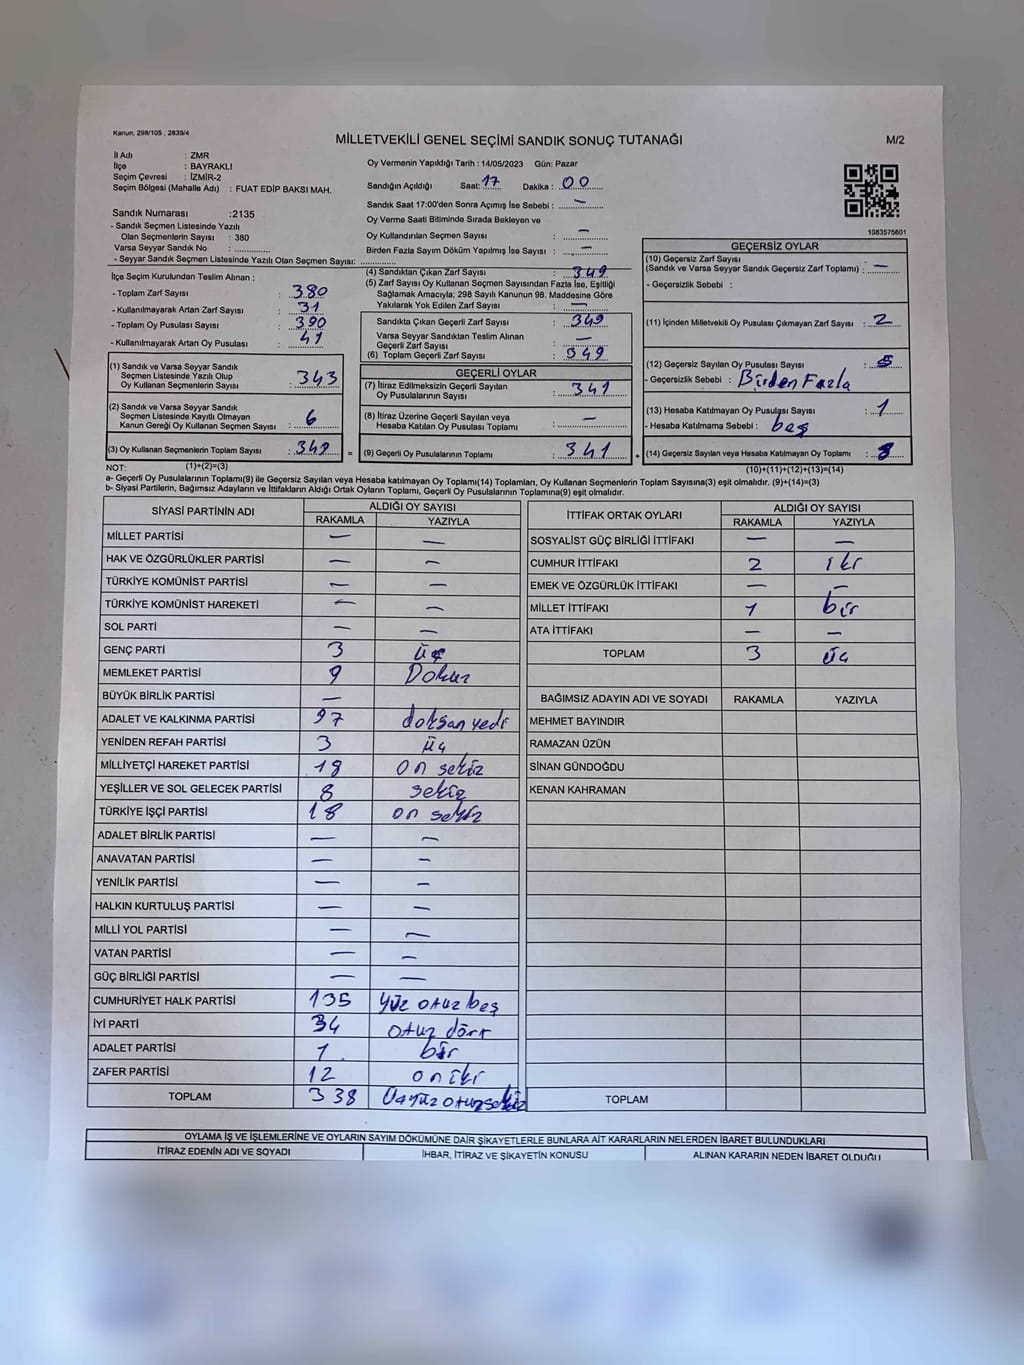 Kanun, 298/105 , 2839/4
MİLLETVEKİLİ GENEL SEÇİMİ SANDIK SONUÇ TUTANAĞI
M/2
İl Adı : ZMR
İlçe : BAYRAKLI
Seçim Çevresi : İZMİR-2
Seçim Bölgesi (Mahalle Adı) : FUAT EDİP BAKSI MAH.
Sandık Numarası :2135
- Sandık Seçmen Listesinde Yazılı
Olan Seçmenlerin Sayısı : 380
Varsa Seyyar Sandık No :
- Seyyar Sandık Seçmen Listesinde Yazılı Olan Seçmen Sayısı:
İlçe Seçim Kurulundan Teslim Alınan :
- Toplam Zarf Sayısı : 380
- Kullanılmayarak Artan Zarf Sayısı : 31
- Toplam Oy Pusulası Sayısı : 390
- Kullanılmayarak Artan Oy Pusulası : 41
(1) Sandık ve Varsa Seyyar Sandık
Seçmen Listesinde Yazılı Olup
Oy Kullanan Seçmenlerin Sayısı : 343
(2) Sandık ve Varsa Seyyar Sandık
Seçmen Listesinde Kayıtlı Olmayan
Kanun Gereği Oy Kullanan Seçmen Sayısı : 6
(3) Oy Kullanan Seçmenlerin Toplam Sayısı : 349 =
(1)+(2)=(3)
Oy Vermenin Yapıldığı Tarih : 14/05/2023 Gün: Pazar
Sandığın Açıldığı Saat: 17 Dakika : 00
Sandık Saat 17:00'den Sonra Açımış İse Sebebi : —
Oy Verme Saati Bitiminde Sırada Bekleyen ve
Oy Kullandırılan Seçmen Sayısı : —
Birden Fazla Sayım Döküm Yapılmış İse Sayısı : —
(4) Sandıktan Çıkan Zarf Sayısı : 349
(5) Zarf Sayısı Oy Kullanan Seçmen Sayısından Fazla İse, Eşitliği
Sağlamak Amacıyla; 298 Sayılı Kanunun 98. Maddesine Göre
Yakılarak Yok Edilen Zarf Sayısı : —
Sandıkta Çıkan Geçerli Zarf Sayısı : 349
Varsa Seyyar Sandıktan Teslim Alınan
Geçerli Zarf Sayısı : —
(6) Toplam Geçerli Zarf Sayısı : 349
GEÇERLİ OYLAR
(7) İtiraz Edilmeksizin Geçerli Sayılan
Oy Pusulalarının Sayısı : 341
(8) İtiraz Üzerine Geçerli Sayılan veya
Hesaba Katılan Oy Pusulası Toplamı : —
(9) Geçerli Oy Pusulalarının Toplamı : 341 +
1083575601
GEÇERSİZ OYLAR
(10) Geçersiz Zarf Sayısı
(Sandık ve Varsa Seyyar Sandık Geçersiz Zarf Toplamı) : —
- Geçersizlik Sebebi :
(11) İçinden Milletvekili Oy Pusulası Çıkmayan Zarf Sayısı : 2
(12) Geçersiz Sayılan Oy Pusulası Sayısı : 5
- Geçersizlik Sebebi : Birden Fazla
(13) Hesaba Katılmayan Oy Pusulası Sayısı : 1
- Hesaba Katılmama Sebebi : beş
(14) Geçersiz Sayılan veya Hesaba Katılmayan Oy Toplamı : 8
(10)+(11)+(12)+(13)=(14)
NOT:
a- Geçerli Oy Pusulalarının Toplamı(9) ile Geçersiz Sayılan veya Hesaba Katılmayan Oy Toplamı(14) Toplamları, Oy Kullanan Seçmenlerin Toplam Sayısına(3) eşit olmalıdır. (9)+(14)=(3)
b- Siyasi Partilerin, Bağımsız Adayların ve İttifakların Aldığı Ortak Oyların Toplamı, Geçerli Oy Pusulalarının Toplamına(9) eşit olmalıdır.
SİYASİ PARTİNİN ADI ALDIĞI OY SAYISI
RAKAMLA YAZIYLA
MİLLET PARTİSİ — —
HAK VE ÖZGÜRLÜKLER PARTİSİ — —
TÜRKİYE KOMÜNİST PARTİSİ — —
TÜRKİYE KOMÜNİST HAREKETİ — —
SOL PARTİ — —
GENÇ PARTİ 3 üç
MEMLEKET PARTİSİ 9 Dokuz
BÜYÜK BİRLİK PARTİSİ —
ADALET VE KALKINMA PARTİSİ 97 doksan yedi
YENİDEN REFAH PARTİSİ 3 üç
MİLLİYETÇİ HAREKET PARTİSİ 18 on sekiz
YEŞİLLER VE SOL GELECEK PARTİSİ 8 sekiz
TÜRKİYE İŞÇİ PARTİSİ 18 on sekiz
ADALET BİRLİK PARTİSİ — —
ANAVATAN PARTİSİ — —
YENİLİK PARTİSİ — —
HALKIN KURTULUŞ PARTİSİ — —
MİLLİ YOL PARTİSİ — —
VATAN PARTİSİ — —
GÜÇ BİRLİĞİ PARTİSİ — —
CUMHURİYET HALK PARTİSİ 135 yüz otuz beş
İYİ PARTİ 34 otuz dört
ADALET PARTİSİ 1 bir
ZAFER PARTİSİ 12 on iki
TOPLAM 338 Üçyüz otuzsekiz
İTTİFAK ORTAK OYLARI ALDIĞI OY SAYISI
RAKAMLA YAZIYLA
SOSYALİST GÜÇ BİRLİĞİ İTTİFAKI — —
CUMHUR İTTİFAKI 2 iki
EMEK VE ÖZGÜRLÜK İTTİFAKI — —
MİLLET İTTİFAKI 1 bir
ATA İTTİFAKI — —
TOPLAM 3 üç
BAĞIMSIZ ADAYIN ADI VE SOYADI RAKAMLA YAZIYLA
MEHMET BAYINDIR
RAMAZAN ÜZÜN
SİNAN GÜNDOĞDU
KENAN KAHRAMAN
TOPLAM
OYLAMA İŞ VE İŞLEMLERİNE VE OYLARIN SAYIM DÖKÜMÜNE DAİR ŞİKAYETLERLE BUNLARA AİT KARARLARIN NELERDEN İBARET BULUNDUKLARI
İTİRAZ EDENİN ADI VE SOYADI İHBAR, İTİRAZ VE ŞİKAYETİN KONUSU ALINAN KARARIN NEDEN İBARET OLDUĞU